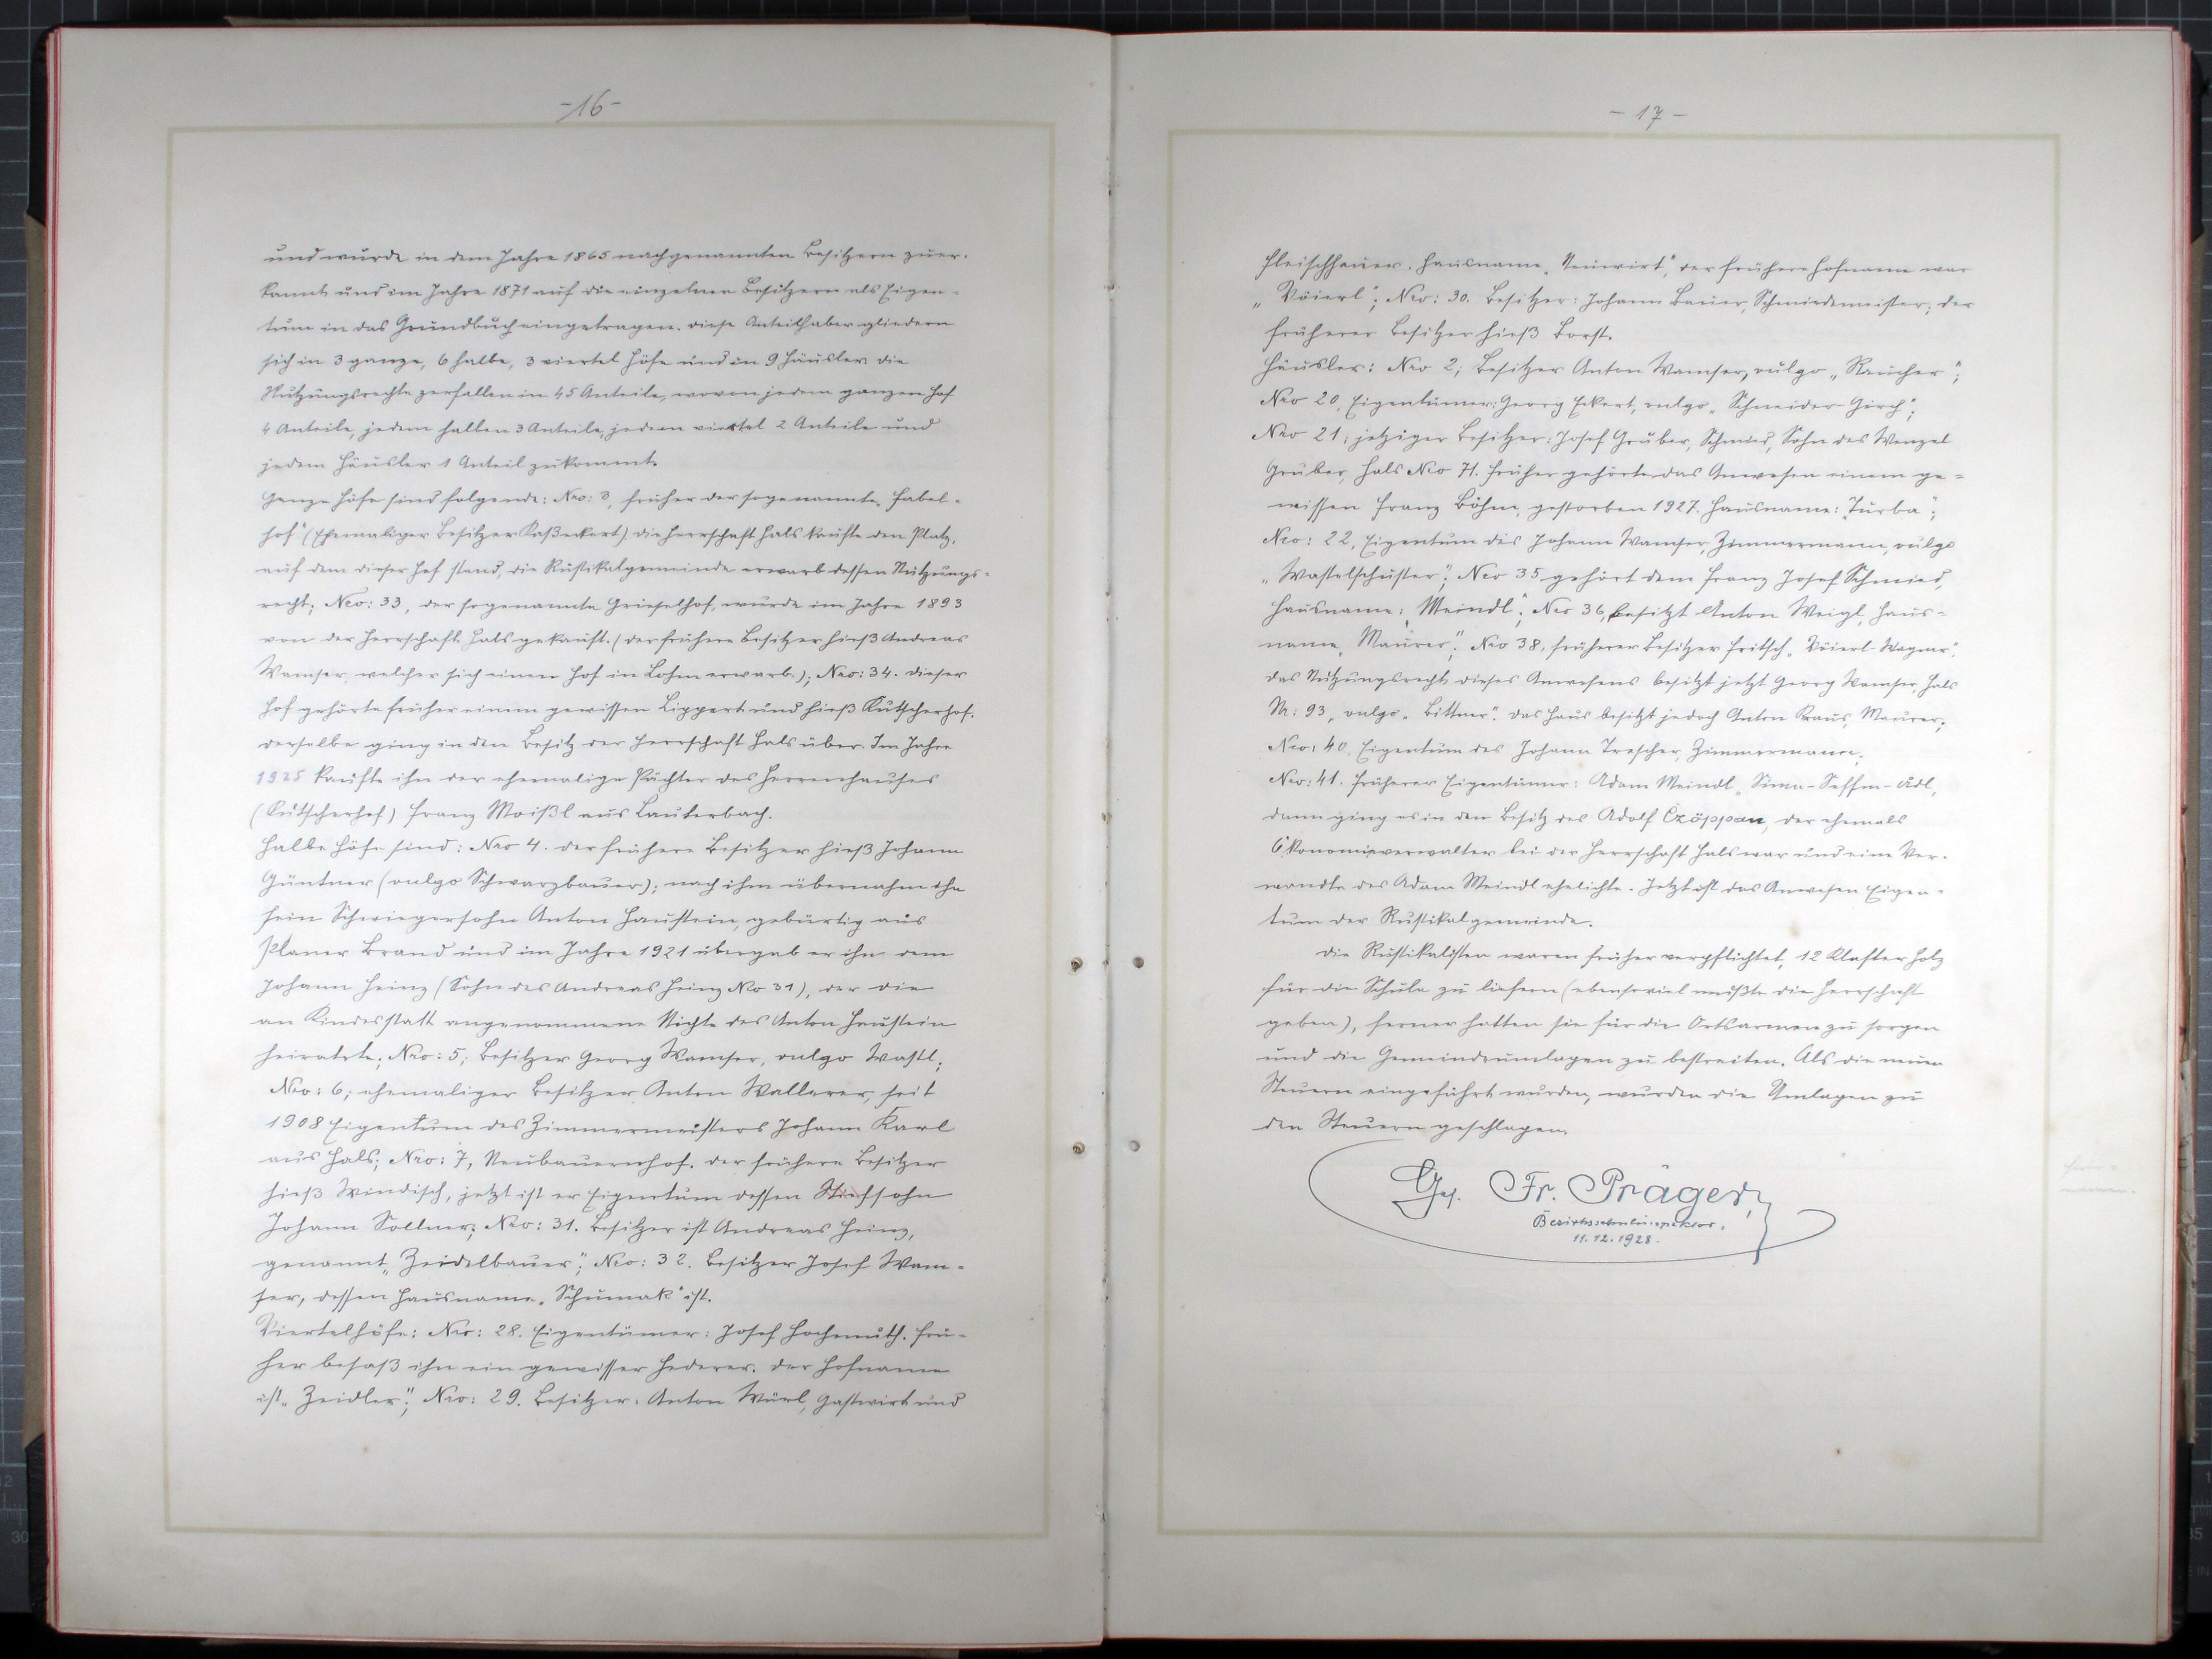 -16-
und wurde in dem Jahre 1865 nachgenannten Besitzern zuer-
kannt und im Jahre 1871 auf die einzelnen Besitzern als Eigen-
tum in das Grundbuch eingetragen. Diese Anteilhaber gliedern
sich in 3 ganze, 6 halbe, 3 viertel Höfe und in 9 Häusler. Die
Nutzungsrechte zerfallen in 45 Anteile, wovon jedem ganzen Hof
4 Anteile, jedem halben 3 Anteile, jedem viertel 2 Anteile und
jedem Häusler 1 Anteil zukommt.
Ganze Höfe sind folgende: Nro: 3, früher der sogenannte „Fabel-
hof“ (Ehemaliger Besitzer Kaßeckert) die Herrschaft Hals kaufte den Platz,
auf dem dieser Hof stand, die Rustikalgemeinde erwarb dessen Nutzungs-
recht; Nro: 33, der sogenannte Grieselhof, wurde im Jahre 1893
von der Herrschaft Hals gekauft. (der frühere Besitzer hieß Andreas
Wamser, welcher sich einen Hof in Lohm erwarb.); Nro: 34. Dieser
Hof gehörte früher einem gewissen Lippert und hieß Kutscherhof.
Derselbe ging in den Besitz der Herrschaft Hals über. Im Jahre
1925 kaufte ihn der ehemalige Pächter des Herrenhauses
(Kutscherhof) Franz Moißl aus Lauterbach.
Halbe Höfe sind: Nro 4. der frühere Besitzer hieß Johann
Güntner (vulgo Schwarzbauer); nach ihm übernahm ihn
sein Schwiegersohn Anton Haustein, gebürtig aus
Planer Brand und im Jahre 1921 übergab er ihn dem
Johann Heinz (Sohn des Andreas Heinz No 31), der die
an Kindesstatt angenommene Nichte des Anton Haustein
heiratete; Nro: 5; Besitzer Georg Wamser, vulgo Wastl;
Nro: 6; ehemaliger Besitzer Anton Wallerer, seit
1908 Eigentum des Zimmermeisters Johann Karl
aus Hals; Nro: 7, Neubauernhof. Der frühere Besitzer
hieß Windisch, jetzt ist er Eigentum dessen Stiefsohn
Johann Sollner; Nro: 31. Besitzer ist Andreas Heinz,
genannt „Zeidelbauer“; Nro: 32. Besitzer Josef Wam-
ser, dessen Hausname „Schumak“ ist.
Viertelhöfe: Nro: 28. Eigentümer: Josef Hochmuth. Frü-
her besaß ihn ein gewisser Hederer. Der Hofname
ist „Zeidler“; Nro: 29. Besitzer: Anton Würl, Gastwirt und
- 17 -
Fleischhauer. Hausname „Neuwirt“, der frühere Hofname war
„Vöierl“; Nro: 30. Besitzer: Johann Bauer, Schmiedemeister; der
früherer Besitzer hieß Borst.
Häusler: Nro 2; Besitzer Anton Wamser, vulgo „Raucher“;
Nro 20, Eigentümer: Georg Eckert, vulgo „Schneider Girch“;
Nro 21; jetziger Besitzer: Josef Gruber, Schmied, Sohn des Wenzel
Gruber, Hals Nro 71. Früher gehörte das Anwesen einem ge-
wissen Franz Böhm, gestorben 1927. Hausname: „Turba“;
Nro: 22, Eigentum des Johann Wamser, Zimmermann, vulgo
„Wastelschuster“; Nro 35 gehört dem Franz Josef Schmied,
Hausname: „Meindl“; Nro 36, besitzt Anton Weigl, Haus-
name „Maurer“; Nro 38, früherer Besitzer Fritsch „Vöierl-Wagner“.
das Nutzungsrecht dieses Anwesens besitzt jetzt Georg Wamser, Hals
Nr: 93, vulgo „Bittner“. das Haus besitzt jedoch Anton Kraus, Maurer;
Nro: 40, Eigentum des Johann Trescher, Zimmermann;
Nro: 41. Früherer Eigentümer: Adam Meindl „Sima-Seffm-Adl,
dann ging es in den Besitz des Adolf Czöppan, der ehemals
Ökonomieverwalter bei der Herrschaft Hals war und eine Ver-
wandte des Adam Meindl ehelichte. Jetzt ist das Anwesen Eigen-
tum der Rustikalgemeinde.
Die Rustikalisten waren früher verpflichtet, 12 Klafter Holz
für die Schule zu liefern (ebensoviel mußte die Herrschaft
geben), ferner hatten sie für die Ortsarmen zu sorgen
und die Gemeindeumlagen zu bestreiten. Als die neuen
Steuern eingeführt wurden, wurden die Umlagen zu
den Steuern geschlagen.
Ges. Fr. Präger,
Bezirksschulinspektor,
11.12.1928.